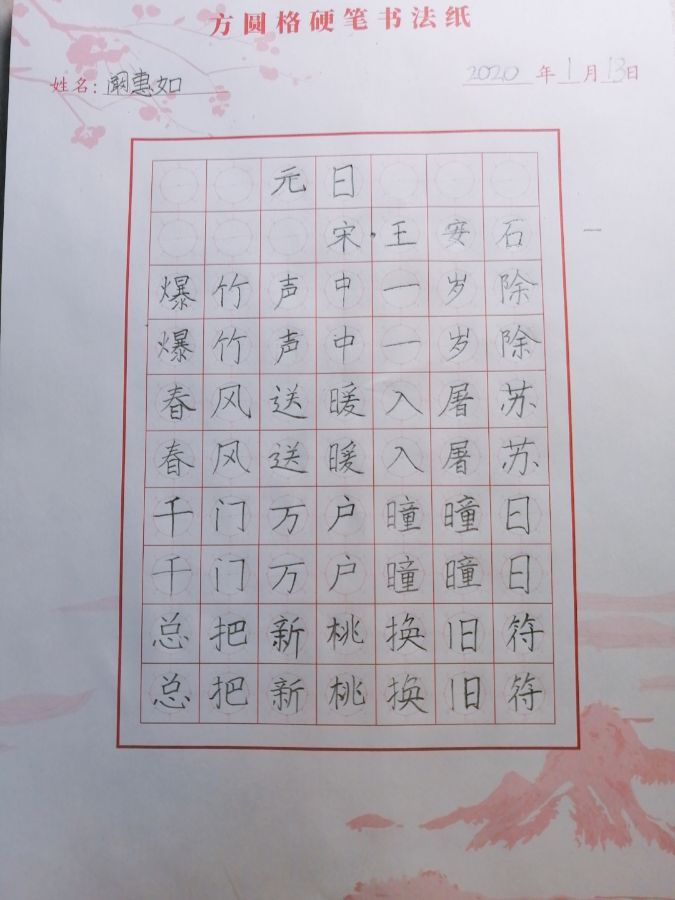 方圆格硬笔书法纸
姓名：阚惠如 2020年1月13日
元日
宋·王安石
爆竹声中一岁除
爆竹声中一岁除
春风送暖入屠苏
春风送暖入屠苏
千门万户瞳瞳日
千门万户瞳瞳日
总把新桃换旧符
总把新桃换旧符